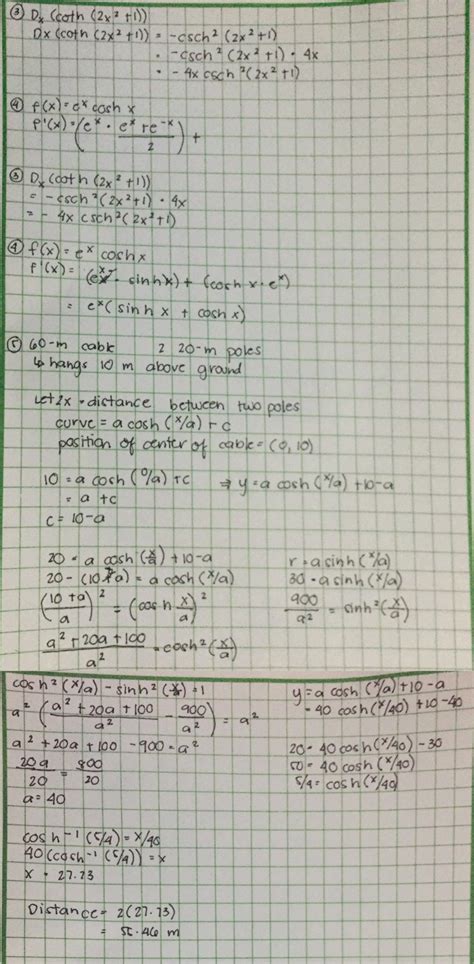 ③ Dx (coth (2x² +1))
Dx (coth (2x² +1)) = -csch² (2x² +1)
= -csch² (2x² +1) · 4x
= - 4x csch² (2x² +1)
④ f(x) = eˣ cosh x
f'(x) = (eˣ · eˣ + e⁻ˣ / 2) +
③ Dx (coth (2x² +1))
= -csch² (2x² +1) · 4x
= - 4x csch² (2x² +1)
④ f(x) = eˣ cosh x
f'(x) = (eˣ · sinh x) + (cosh x · eˣ)
= eˣ (sinh x + cosh x)
⑤ 60-m cable 2 20-m poles
↳ hangs 10 m above ground
Let 2x = distance between two poles
curve = a cosh (x/a) + c
position of center of cable = (0, 10)
10 = a cosh (0/a) + c ⇒ y = a cosh (x/a) + 10 - a
= a + c
c = 10 - a
20 = a cosh (x/a) + 10 - a
20 - (10 - a) = a cosh (x/a)
((10 + a)/a)² = (cosh x/a)²
(a² + 20a + 100)/a² = cosh² (x/a)
r = a sinh (x/a)
30 = a sinh (x/a)
900/a² = sinh² (x/a)
cosh² (x/a) - sinh² (x/a) = 1
a² ((a² + 20a + 100)/a² - 900/a²) = a²
a² + 20a + 100 - 900 = a²
20a/20 = 800/20
a = 40
y = a cosh (x/a) + 10 - a
= 40 cosh (x/40) + 10 - 40
20 = 40 cosh (x/40) - 30
50 = 40 cosh (x/40)
5/4 = cosh (x/40)
cosh⁻¹ (5/4) = x/40
40 (cosh⁻¹ (5/4)) = x
x = 27.73
Distance = 2 (27.73)
= 55.46 m